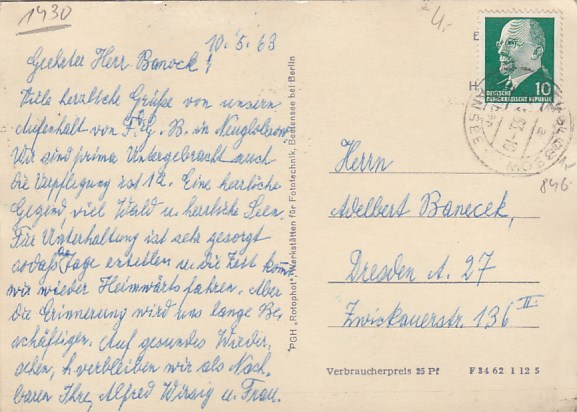 1430
10.5.63
Geehrter Herr Baneck!
Viele herzliche Grüße von unsern
Aufenthalt von F.D.G.B. in Neuglobsow
Wir sind prima Untergebracht auch
die Verpflegung ist 1a. Eine herrliche
Gegend, viel Wald u. herrliche Seen,
Für Unterhaltung ist sehr gesorgt
sodaß die Tage ereilen u. die Zeit kom
wir wieder Heimwärts fahren. Aber
die Erinnerung wird uns lange Be
schäftigen. Auf gesundes Wieder
sehen, verbleiben wir als Nach
barn Ihre, Alfred Wirsig u. Frau.
PGH „Rotophot", Werkstätten für Fototechnik, Bestensee bei Berlin
10
DEUTSCHE
DEMOKRATISCHE REPUBLIK
846
Herrn
Adelbert Banecek,
Dresden A. 27
Zwickauerstr. 136 II
Verbraucherpreis 25 Pf F 34 62 1 12 5